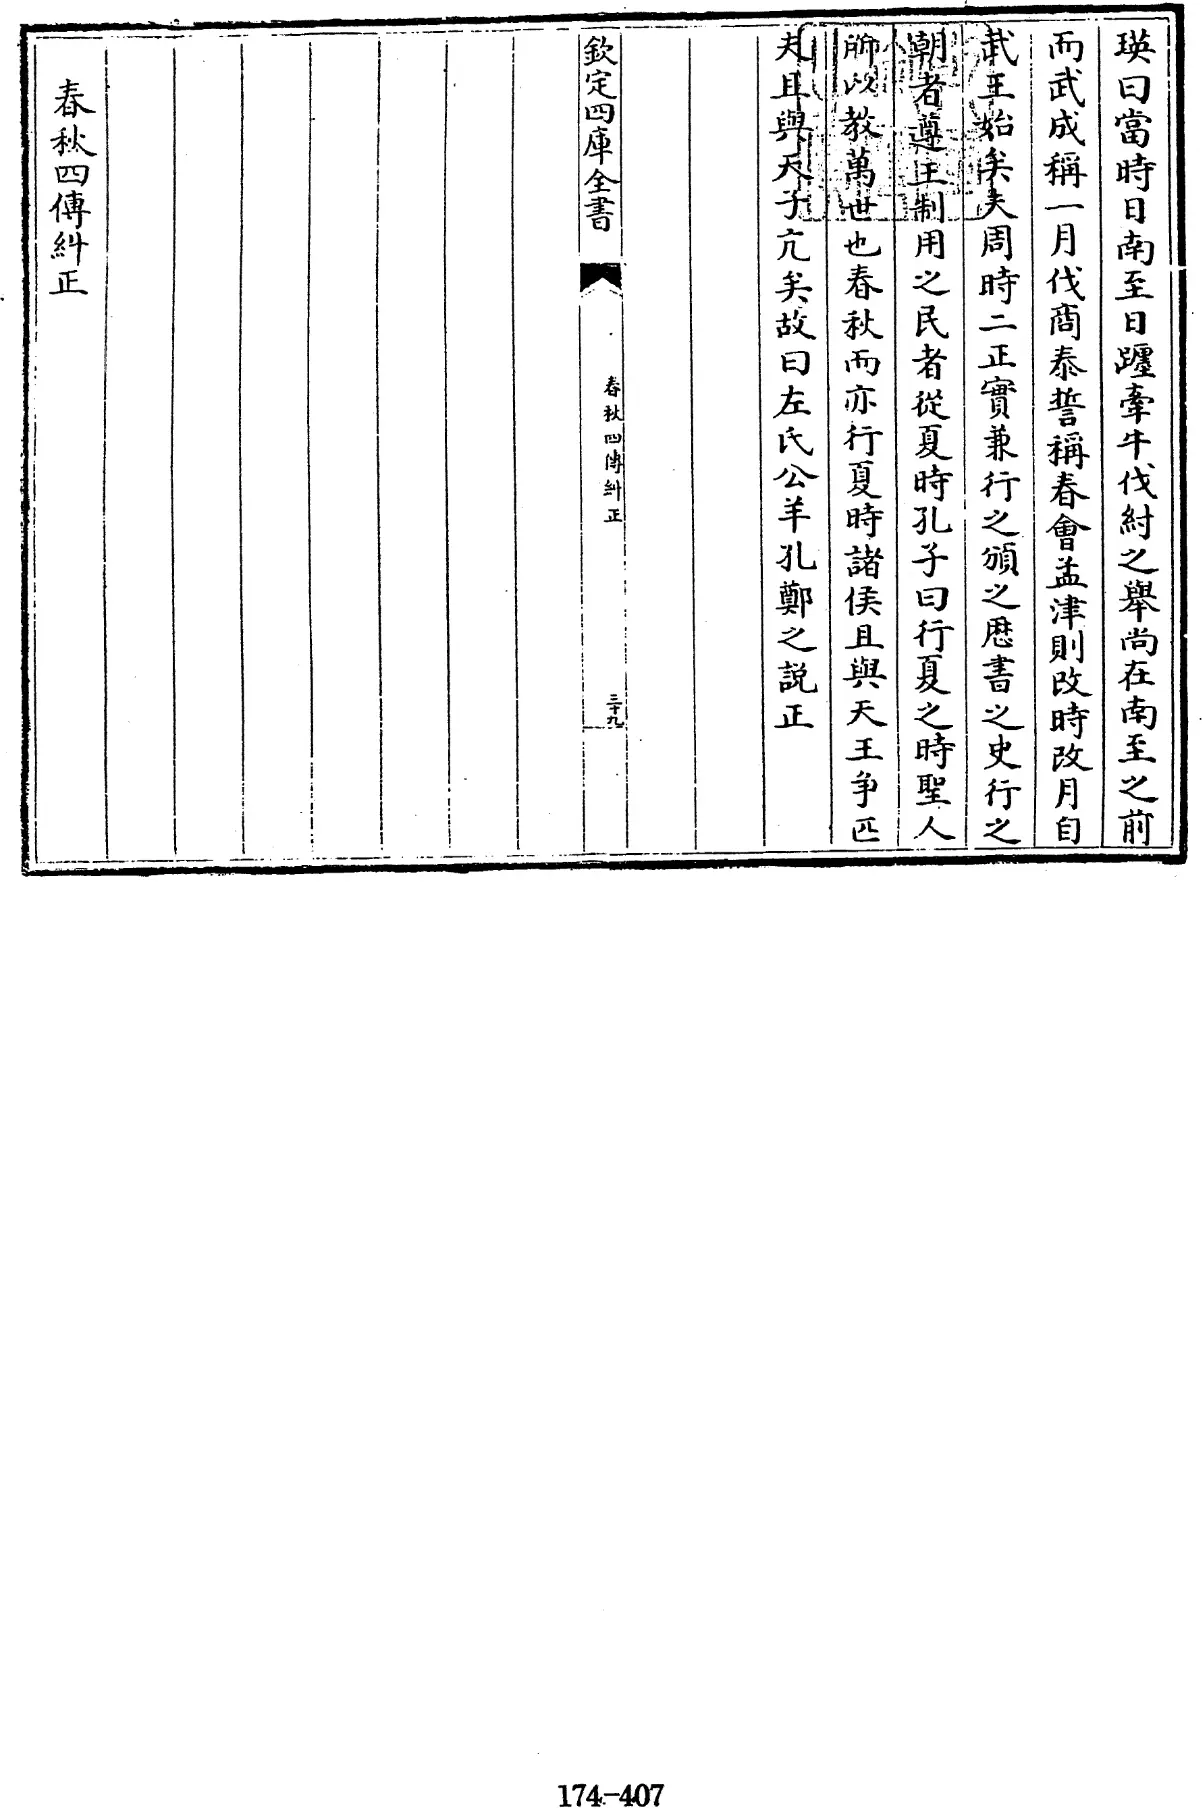 瑛曰當時日南至日躔牽牛伐紂之舉尚在南至之前
而武成稱一月伐商泰誓稱春會孟津則改時改月自
武王始矣夫周時二正實兼行之頒之厯書之史行之
朝者遵王制用之民者從夏時孔子曰行夏之時聖人
所以教萬世也春秋而亦行夏時諸侯且與天王争匹
夫且與天子亢矣故曰左氏公羊孔鄭之説正
欽定四庫全書
春秋四傳糾正
三十九
春秋四傳糾正
174-407